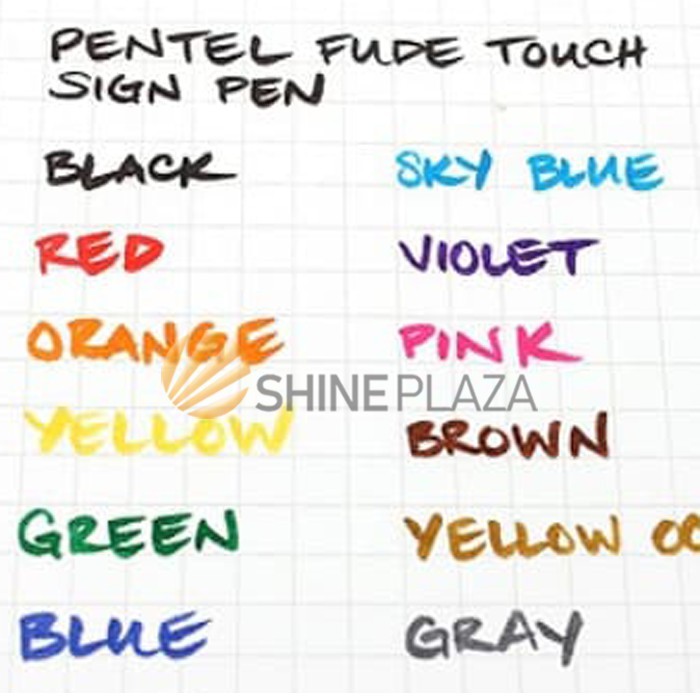 PENTEL FUDE TOUCH
SIGN PEN
BLACK
RED
ORANGE
YELLOW
GREEN
BLUE
SKY BLUE
VIOLET
PINK
BROWN
YELLOW
GRAY
SHINEPLAZA